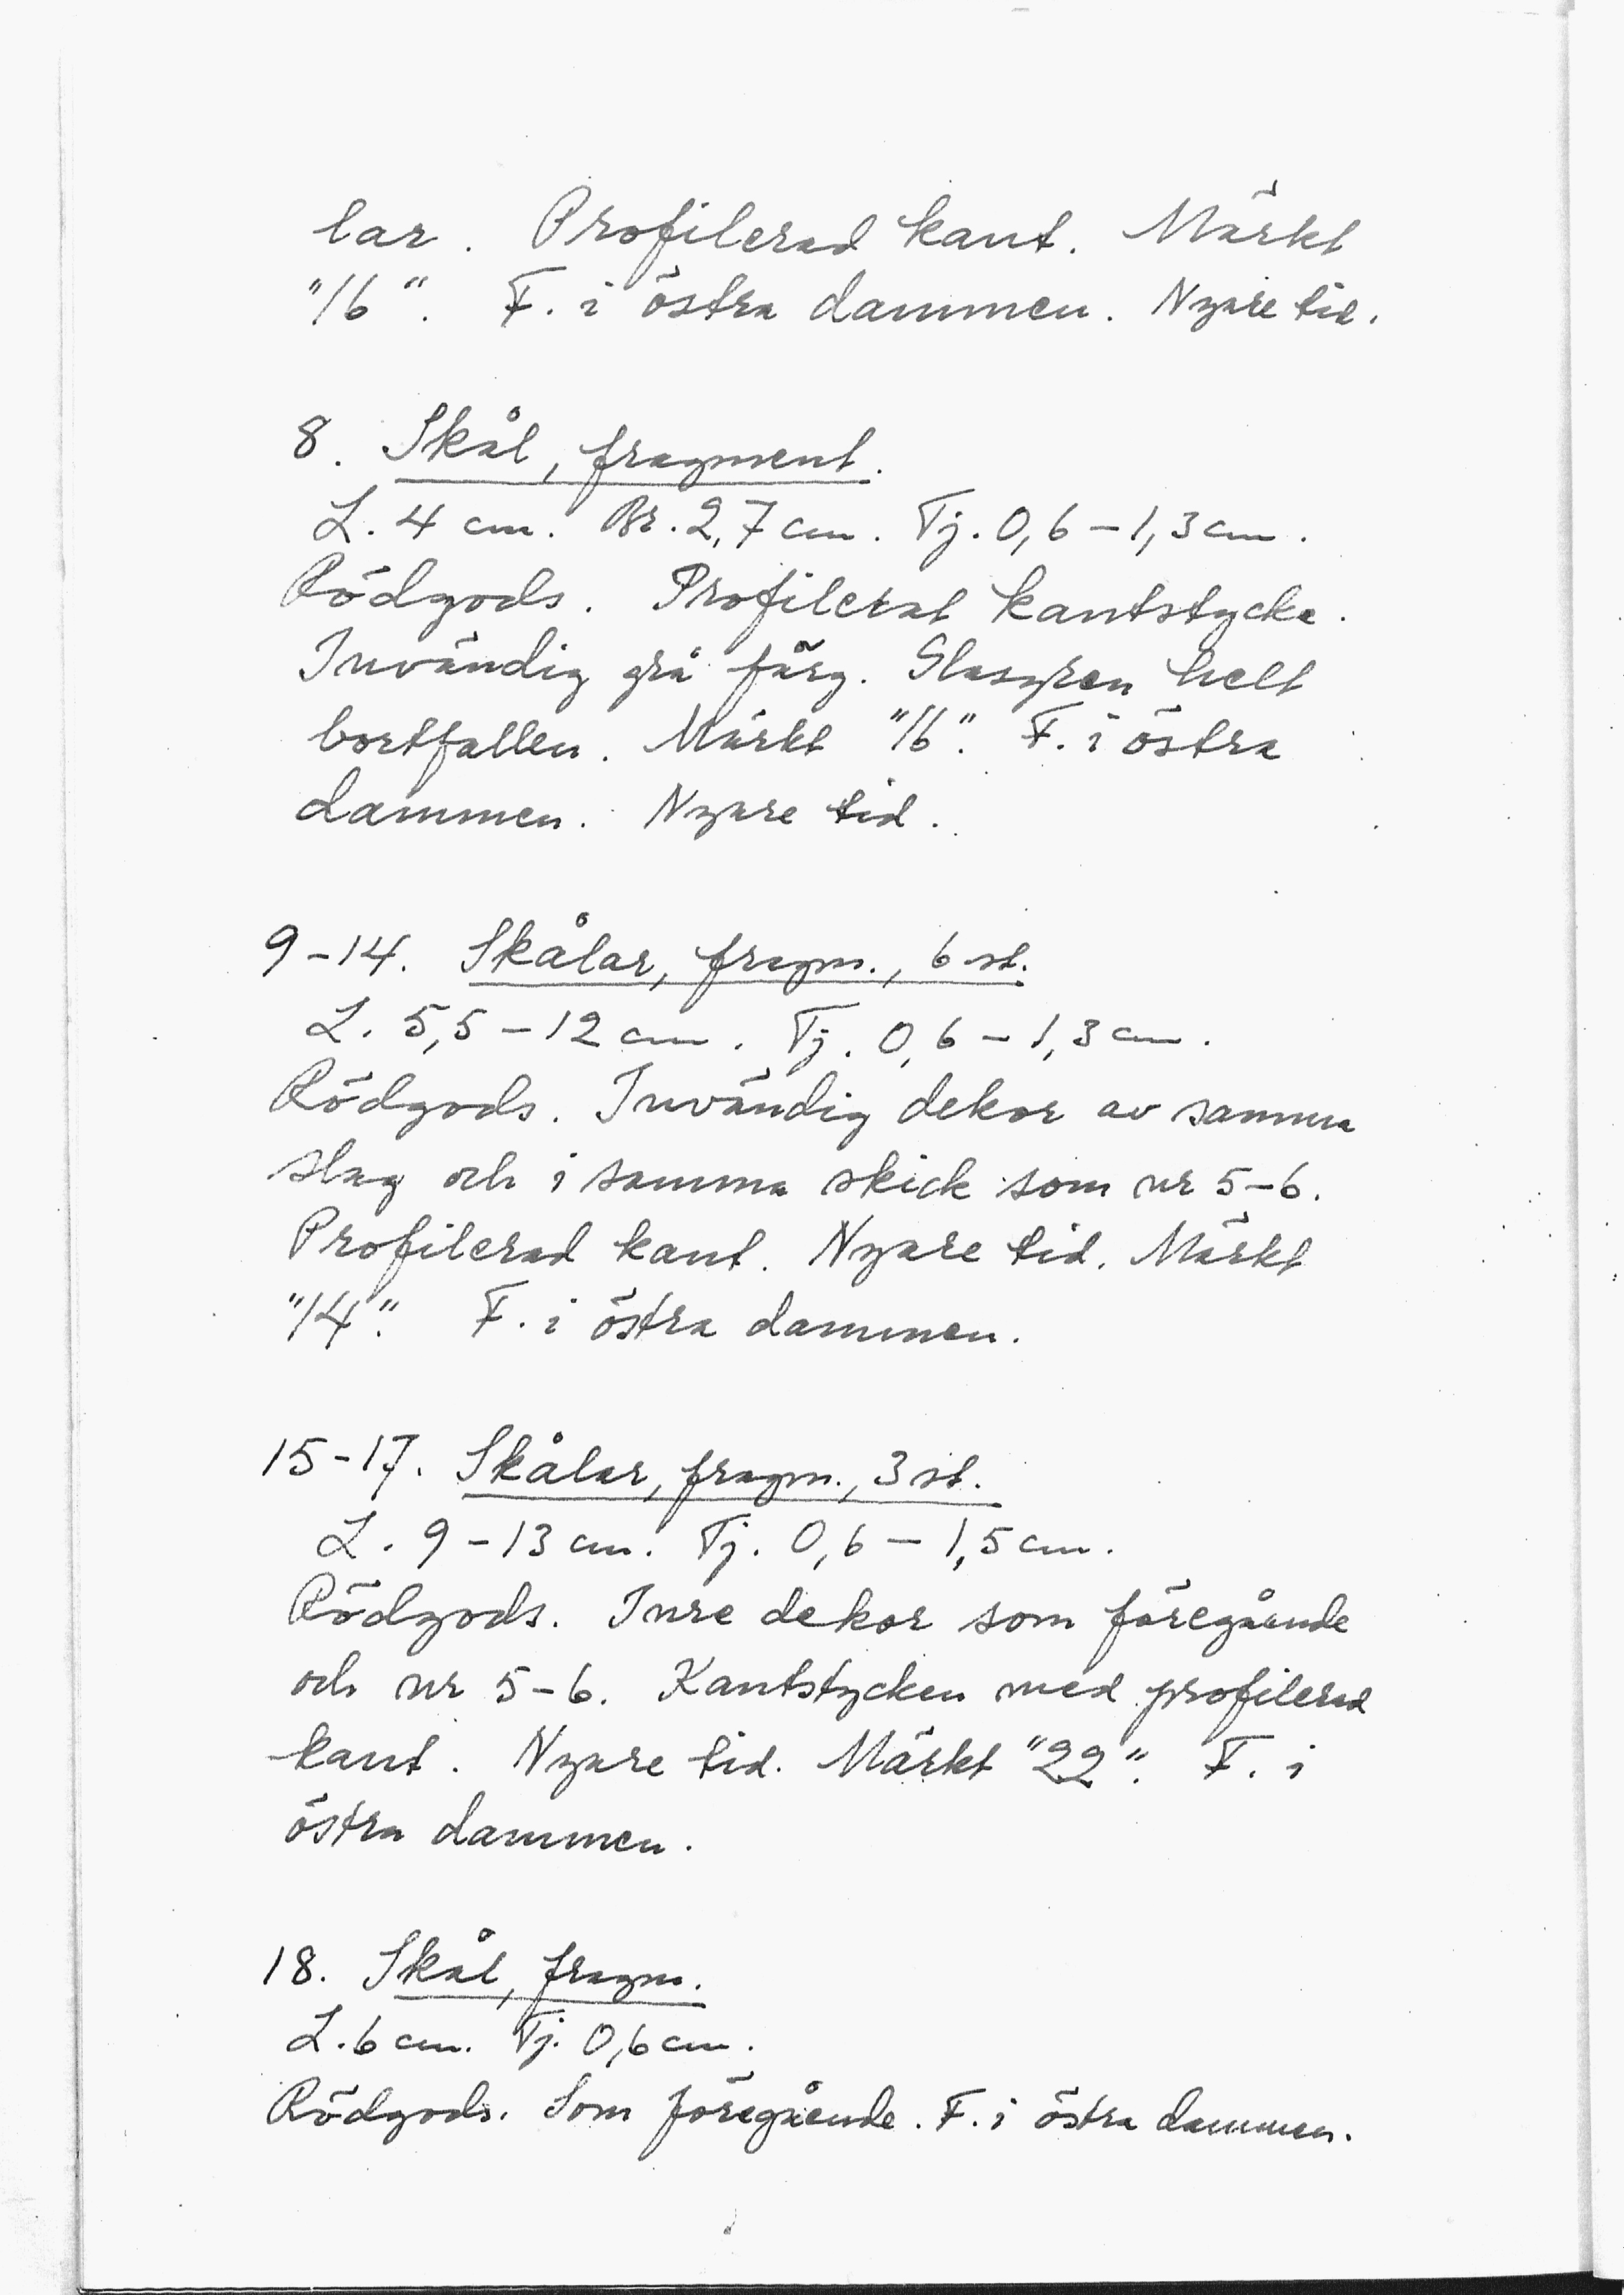 lar. Profilerad kant. Märkt
"16". F. i östra dammen. Nyare tid.
8. Skål, fragment.
L. 4 cm. Br. 2,7 cm. Tj. 0,6 – 1,3 cm.
Rödgods. Profilerat kantstycke.
Invändig grå färg. Glasyren helt
bortfallen. Märkt "16". F. i östra
dammen. Nyare tid.
9-14. Skålar, fragm., 6 st.
L. 5,5 – 12 cm. Tj. 0,6 – 1,3 cm.
Rödgods. Invändig dekor av samma
slag och i samma skick som nr 5-6.
Profilerad kant. Nyare tid. Märkt
"14". F. i östra dammen.
15-17. Skålar, fragm., 3 st.
L. 9 – 13 cm. Tj. 0,6 – 1,5 cm.
Rödgods. Inre dekor som föregående
och nr 5-6. Kantstycken med profilerad
kant. Nyare tid. Märkt "22". F. i
östra dammen.
18. Skål, fragm.
L. 6 cm. Tj. 0,6 cm.
Rödgods. Som föregående. F. i östra dammen.